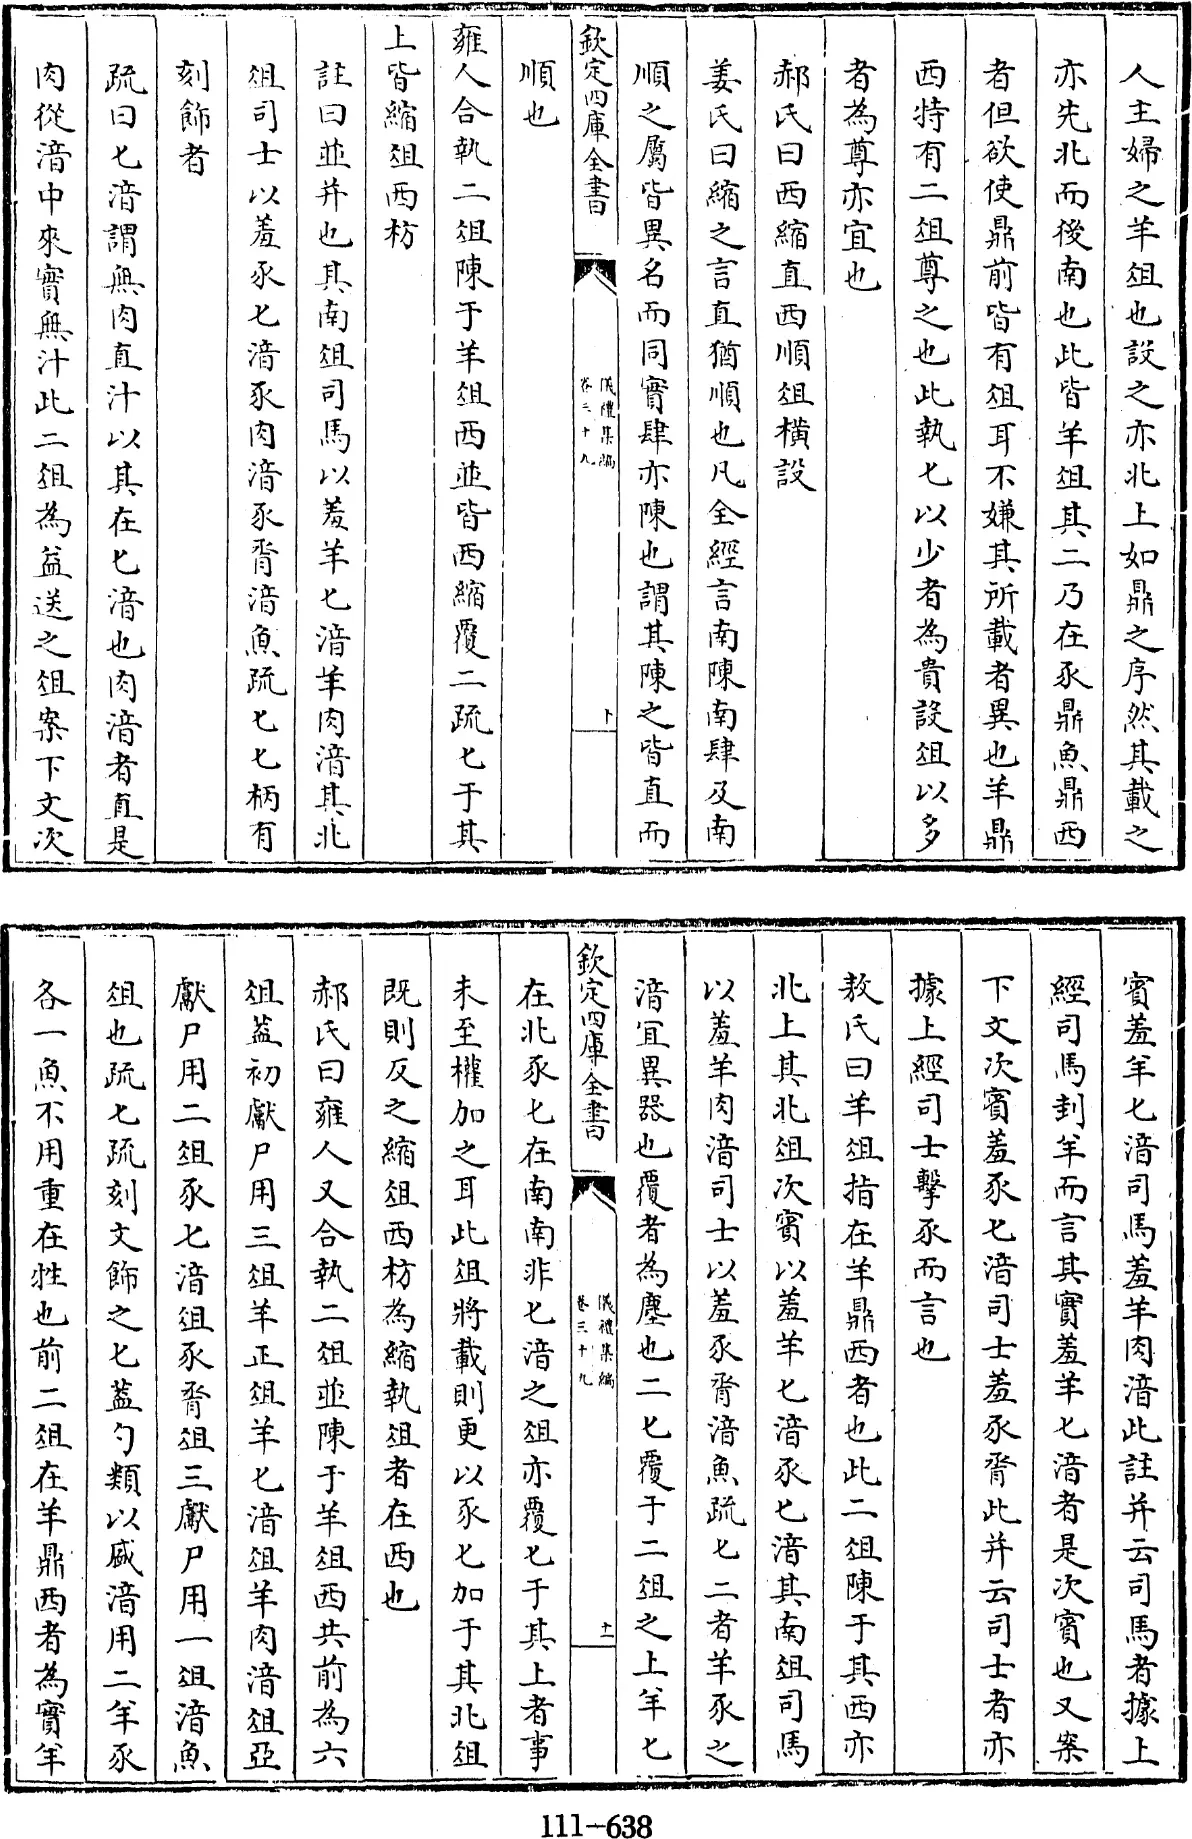 人主婦之羊俎也設之亦北上如鼎之序然其載之
亦先北而後南也此皆羊俎其二乃在豕鼎魚鼎西
者但欲使鼎前皆有俎耳不嫌其所載者異也羊鼎
西特有二俎尊之也此執匕以少者為貴設俎以多
者為尊亦宜也
郝氏曰西縮直西順俎橫設
姜氏曰縮之言直猶順也凡全經言南陳南肆及南
順之屬皆異名而同實肆亦陳也謂其陳之皆直而
欽定四庫全書
儀禮集編
卷三十九
十
順也
雍人合執二俎陳于羊俎西並皆西縮覆二疏匕于其
上皆縮俎西枋
註曰並并也其南俎司馬以羞羊匕湇羊肉湇其北
俎司士以羞豕匕湇豕肉湇豕脀湇魚疏匕匕柄有
刻飾者
疏曰匕湇謂無肉直汁以其在匕湇也肉湇者直是
肉從湇中來實無汁此二俎為益送之俎案下文次
賓羞羊匕湇司馬羞羊肉湇此註并云司馬者據上
經司馬刲羊而言其實羞羊匕湇者是次賓也又案
下文次賓羞豕匕湇司士羞豕脀此并云司士者亦
據上經司士擊豕而言也
敖氏曰羊俎指在羊鼎西者也此二俎陳于其西亦
北上其北俎次賓以羞羊匕湇豕匕湇其南俎司馬
以羞羊肉湇司士以羞豕脀湇魚疏匕二者羊豕之
湇宜異器也覆者為塵也二匕覆于二俎之上羊匕
欽定四庫全書
儀禮集編
卷三十九
十一
在北豕匕在南南非匕湇之俎亦覆匕于其上者事
未至權加之耳此俎將載則更以豕匕加于其北俎
既則反之縮俎西枋為縮執俎者在西也
郝氏曰雍人又合執二俎並陳于羊俎西共前為六
俎蓋初獻尸用三俎羊正俎羊匕湇俎羊肉湇俎亞
獻尸用二俎豕匕湇俎豕脀俎三獻尸用一俎湇魚
俎也疏匕疏刻文飾之匕蓋勺類以盛湇用二羊豕
各一魚不用重在牲也前二俎在羊鼎西者為實羊
111-638